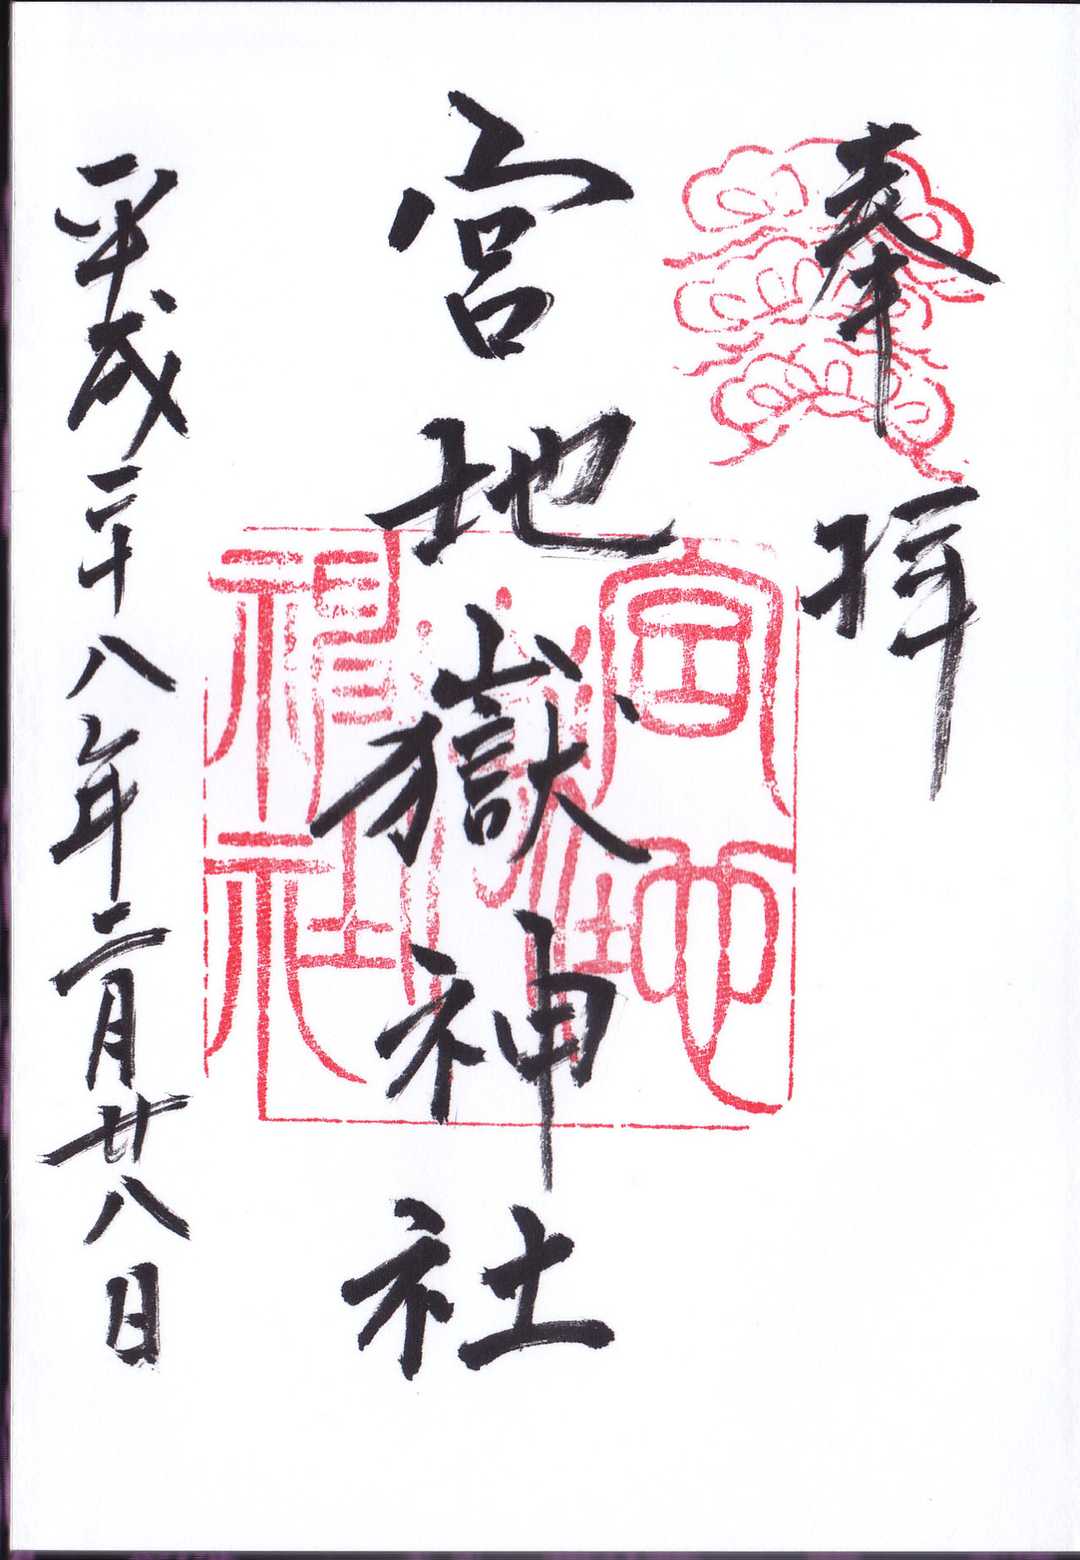 奉拝
宮地嶽神社
宮地嶽神社
平成二十八年二月廿八日